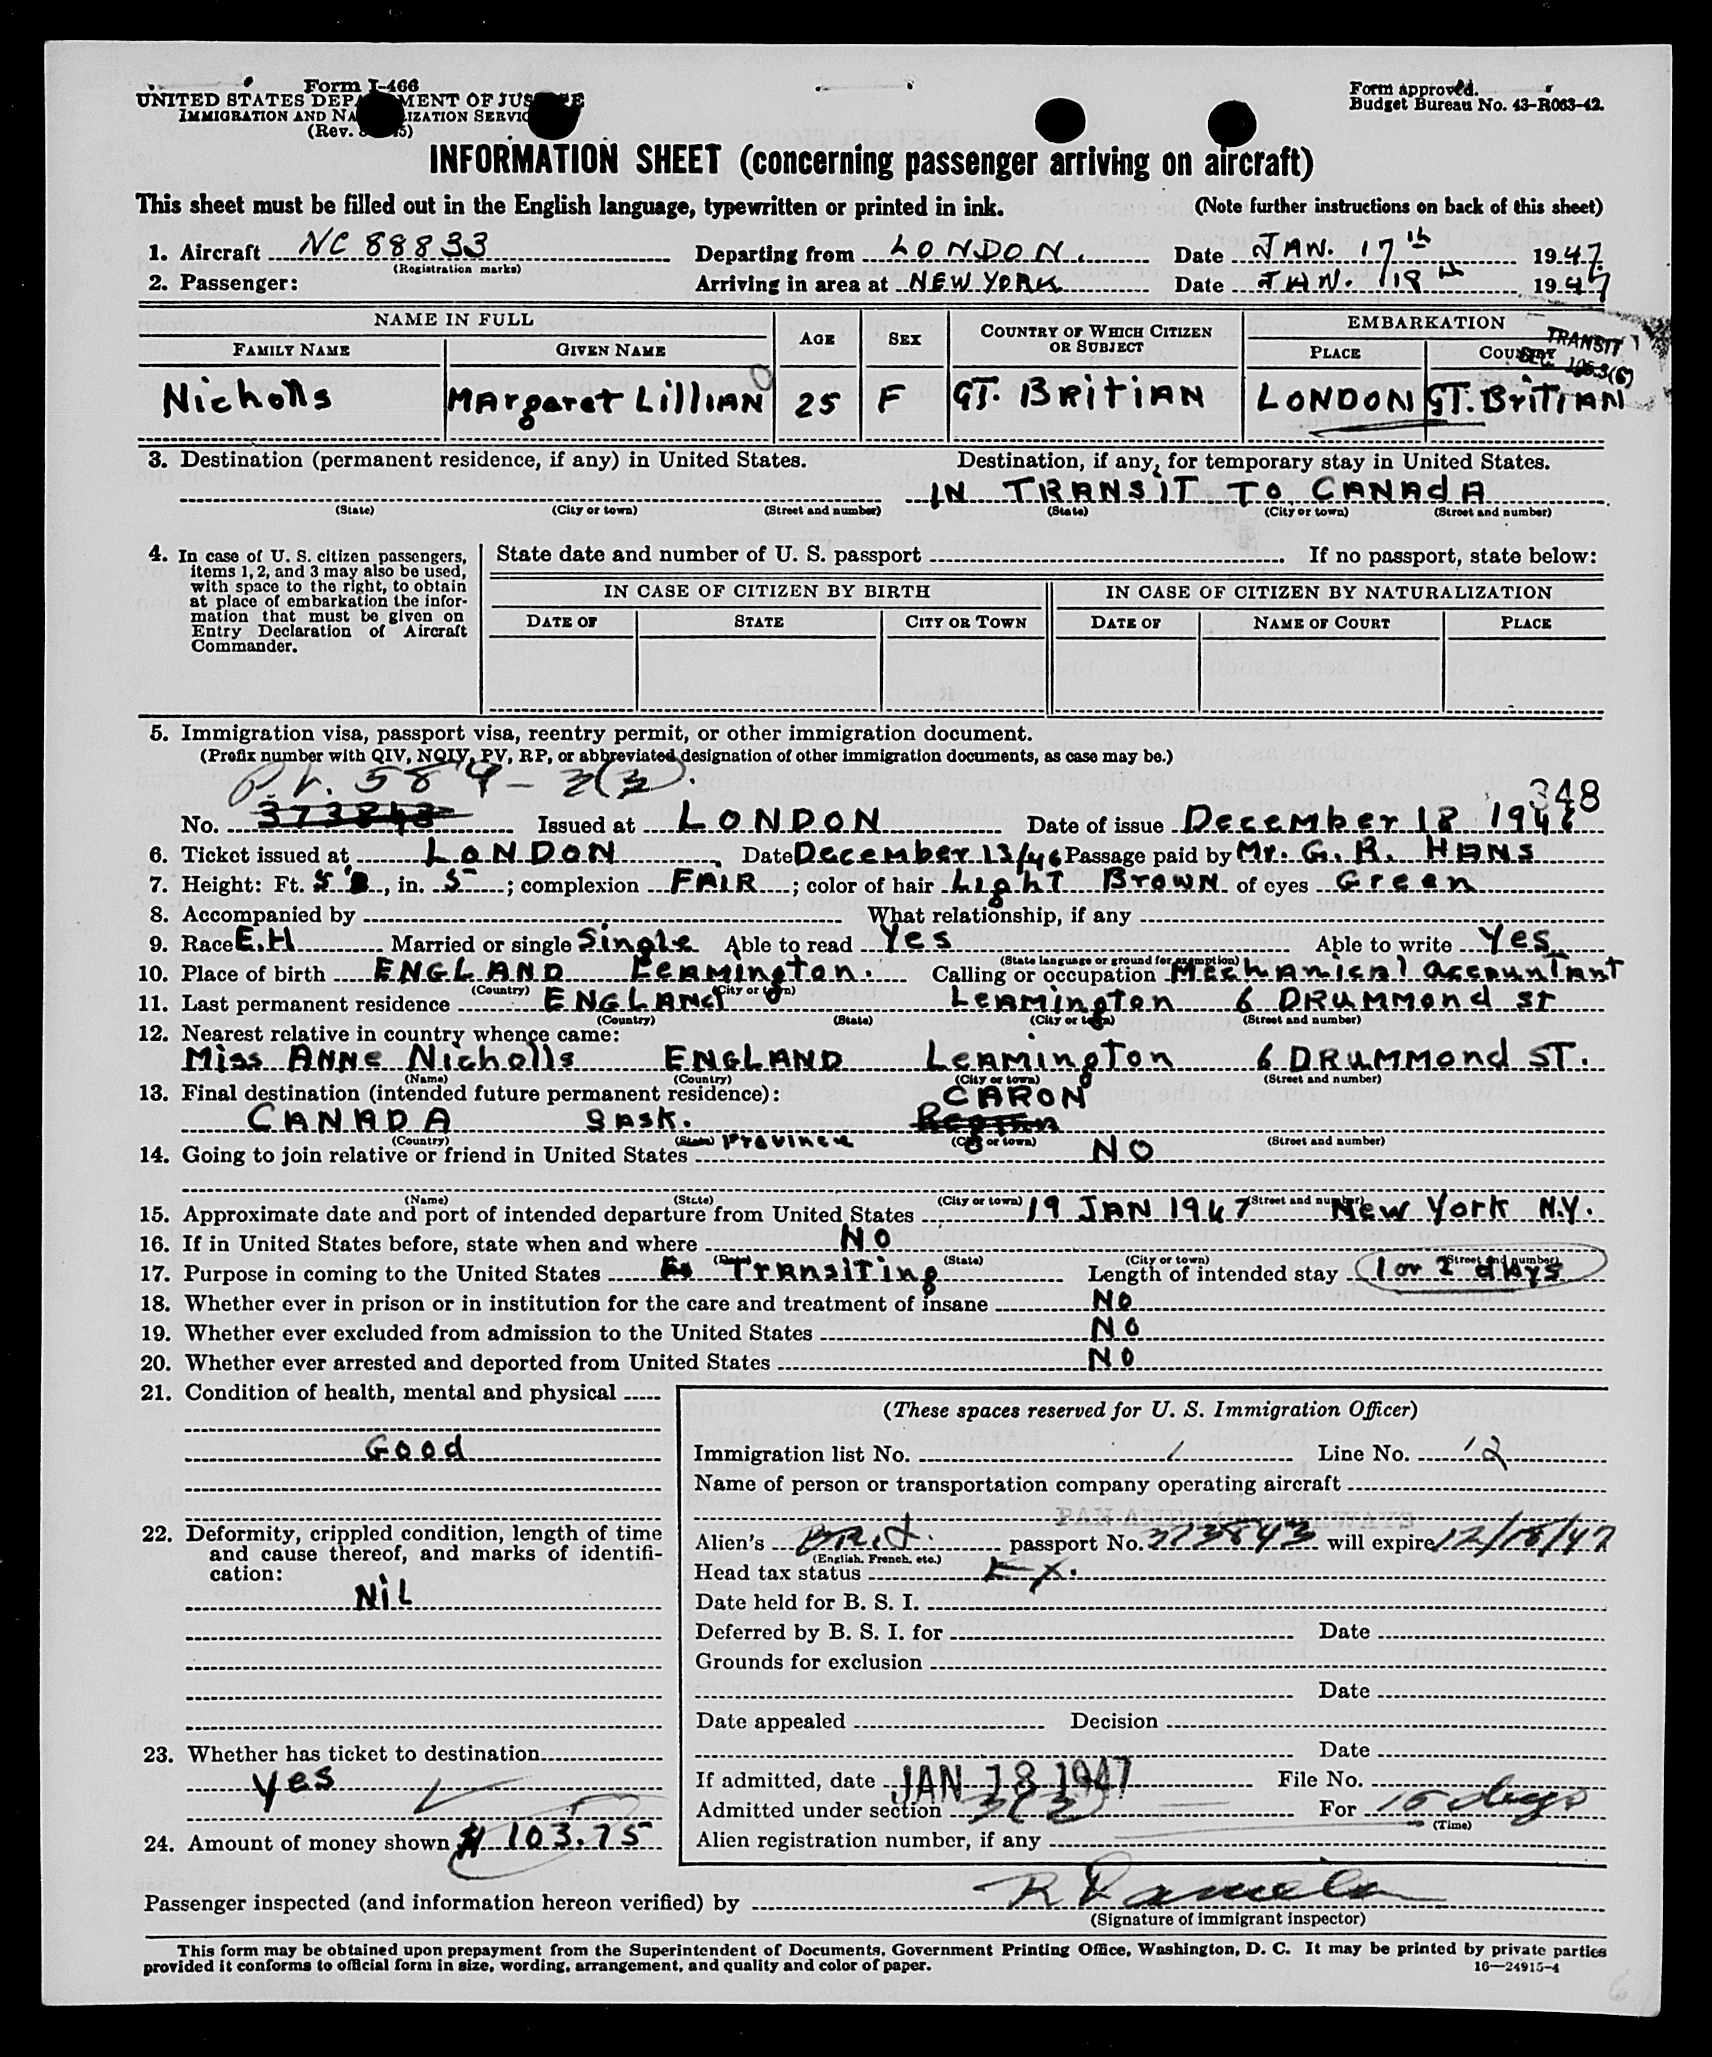 Form I-466
UNITED STATES DEPARTMENT OF JUSTICE
IMMIGRATION AND NATURALIZATION SERVICE
(Rev.
Form approved.
Budget Bureau No. 43-R063-42.
INFORMATION SHEET (concerning passenger arriving on aircraft)
This sheet must be filled out in the English language, typewritten or printed in ink. (Note further instructions on back of this sheet)
1. Aircraft NC 88833 Departing from LONDON. Date JAN. 17th 1947
(Registration marks)
2. Passenger: Arriving in area at NEW YORK Date JAN. 18th 1947
NAME IN FULL AGE SEX COUNTRY OF WHICH CITIZEN OR SUBJECT EMBARKATION
FAMILY NAME GIVEN NAME PLACE COUNTRY
TRANSIT
SEC.
Nicholls MArgareT LilliAN 25 F GT. BRiTiAN LONDON GT. BriTiAN
3. Destination (permanent residence, if any) in United States. Destination, if any, for temporary stay in United States.
IN TRANSiT TO CANAdA
(State) (City or town) (Street and number) (State) (City or town) (Street and number)
4. In case of U. S. citizen passengers, items 1, 2, and 3 may also be used, with space to the right, to obtain at place of embarkation the information that must be given on Entry Declaration of Aircraft Commander.
State date and number of U. S. passport If no passport, state below:
IN CASE OF CITIZEN BY BIRTH IN CASE OF CITIZEN BY NATURALIZATION
DATE OF STATE CITY OR TOWN DATE OF NAME OF COURT PLACE
5. Immigration visa, passport visa, reentry permit, or other immigration document.
(Prefix number with QIV, NQIV, PV, RP, or abbreviated designation of other immigration documents, as case may be.)
P.V. 584 - 3(3).
348
No. 373843 Issued at LONDON Date of issue December 18 1946
6. Ticket issued at LONDON Date December 13/46 Passage paid by Mr. G. R. HANS
7. Height: Ft. 5, in. 5; complexion FAiR; color of hair LighT BrowN of eyes Green
8. Accompanied by What relationship, if any
9. Race E.H Married or single Single Able to read Yes Able to write Yes
(State language or ground for exemption)
10. Place of birth ENGLAND LeAMington. Calling or occupation MechANicAl AccounTAnt
(Country) (City or town)
11. Last permanent residence ENGLANd LeAMington 6 DRuMMond ST
(Country) (State) (City or town) (Street and number)
12. Nearest relative in country whence came:
Miss ANNe Nicholls ENGLAND LeAMingTon 6 DRuMMond ST.
(Name) (Country) (City or town) (Street and number)
13. Final destination (intended future permanent residence): CARON
CANADA SASK. Regina
(Country) (State) Province (City or town) (Street and number)
14. Going to join relative or friend in United States NO
(Name) (State) (City or town) (Street and number)
15. Approximate date and port of intended departure from United States 19 JAN 1947 New York N.Y.
16. If in United States before, state when and where NO
(Date) (State) (City or town) (Street and number)
17. Purpose in coming to the United States TrANsiTing Length of intended stay 1 or 2 dAys
18. Whether ever in prison or in institution for the care and treatment of insane NO
19. Whether ever excluded from admission to the United States NO
20. Whether ever arrested and deported from United States NO
21. Condition of health, mental and physical
Good
22. Deformity, crippled condition, length of time and cause thereof, and marks of identification:
NiL
23. Whether has ticket to destination
Yes
24. Amount of money shown $ 103.75
(These spaces reserved for U. S. Immigration Officer)
Immigration list No. 1 Line No. 12
Name of person or transportation company operating aircraft
PAN AMERICAN AIRWAYS
Alien's Brit. passport No. 373843 will expire 12/18/47
(English, French, etc.)
Head tax status Ex.
Date held for B. S. I.
Deferred by B. S. I. for Date
Grounds for exclusion
Date
Date appealed Decision
Date
If admitted, date JAN 18 1947 File No.
Admitted under section 3(3) For 15 days
(Time)
Alien registration number, if any
Passenger inspected (and information hereon verified) by R Daniels
(Signature of immigrant inspector)
This form may be obtained upon prepayment from the Superintendent of Documents, Government Printing Office, Washington, D. C. It may be printed by private parties
provided it conforms to official form in size, wording, arrangement, and quality and color of paper. 16—24915-4